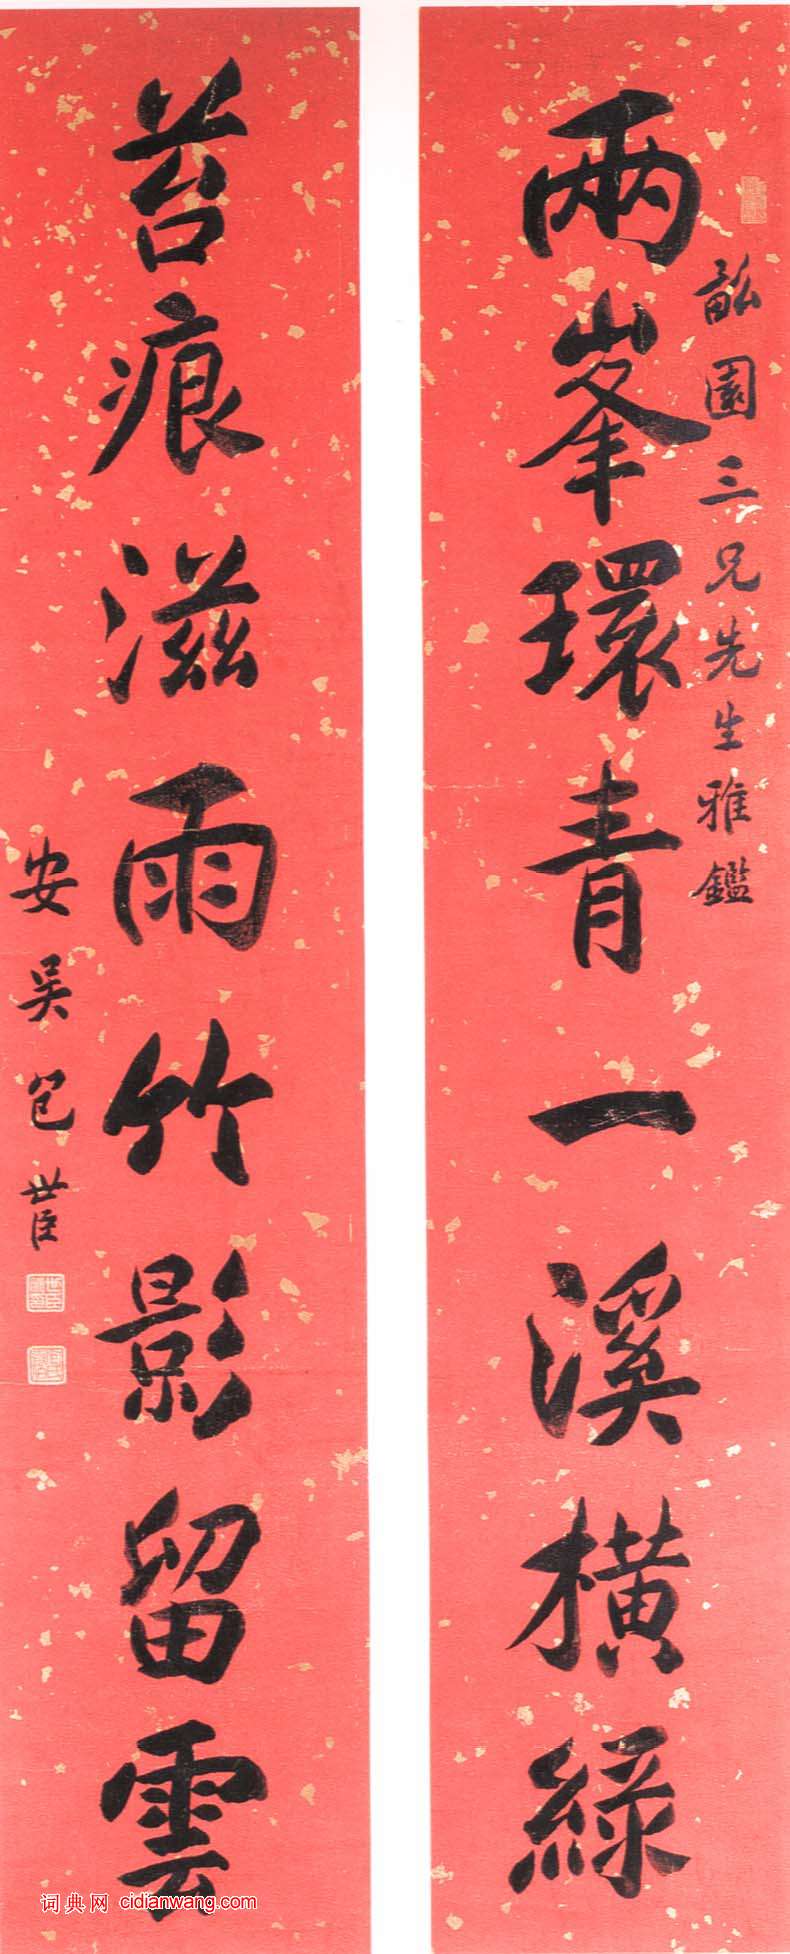 園三兄先生雅鑑
兩峯環青一溪橫綠
苔痕滋雨竹影留雲
安吳包世臣
词典网 cidianwang.com